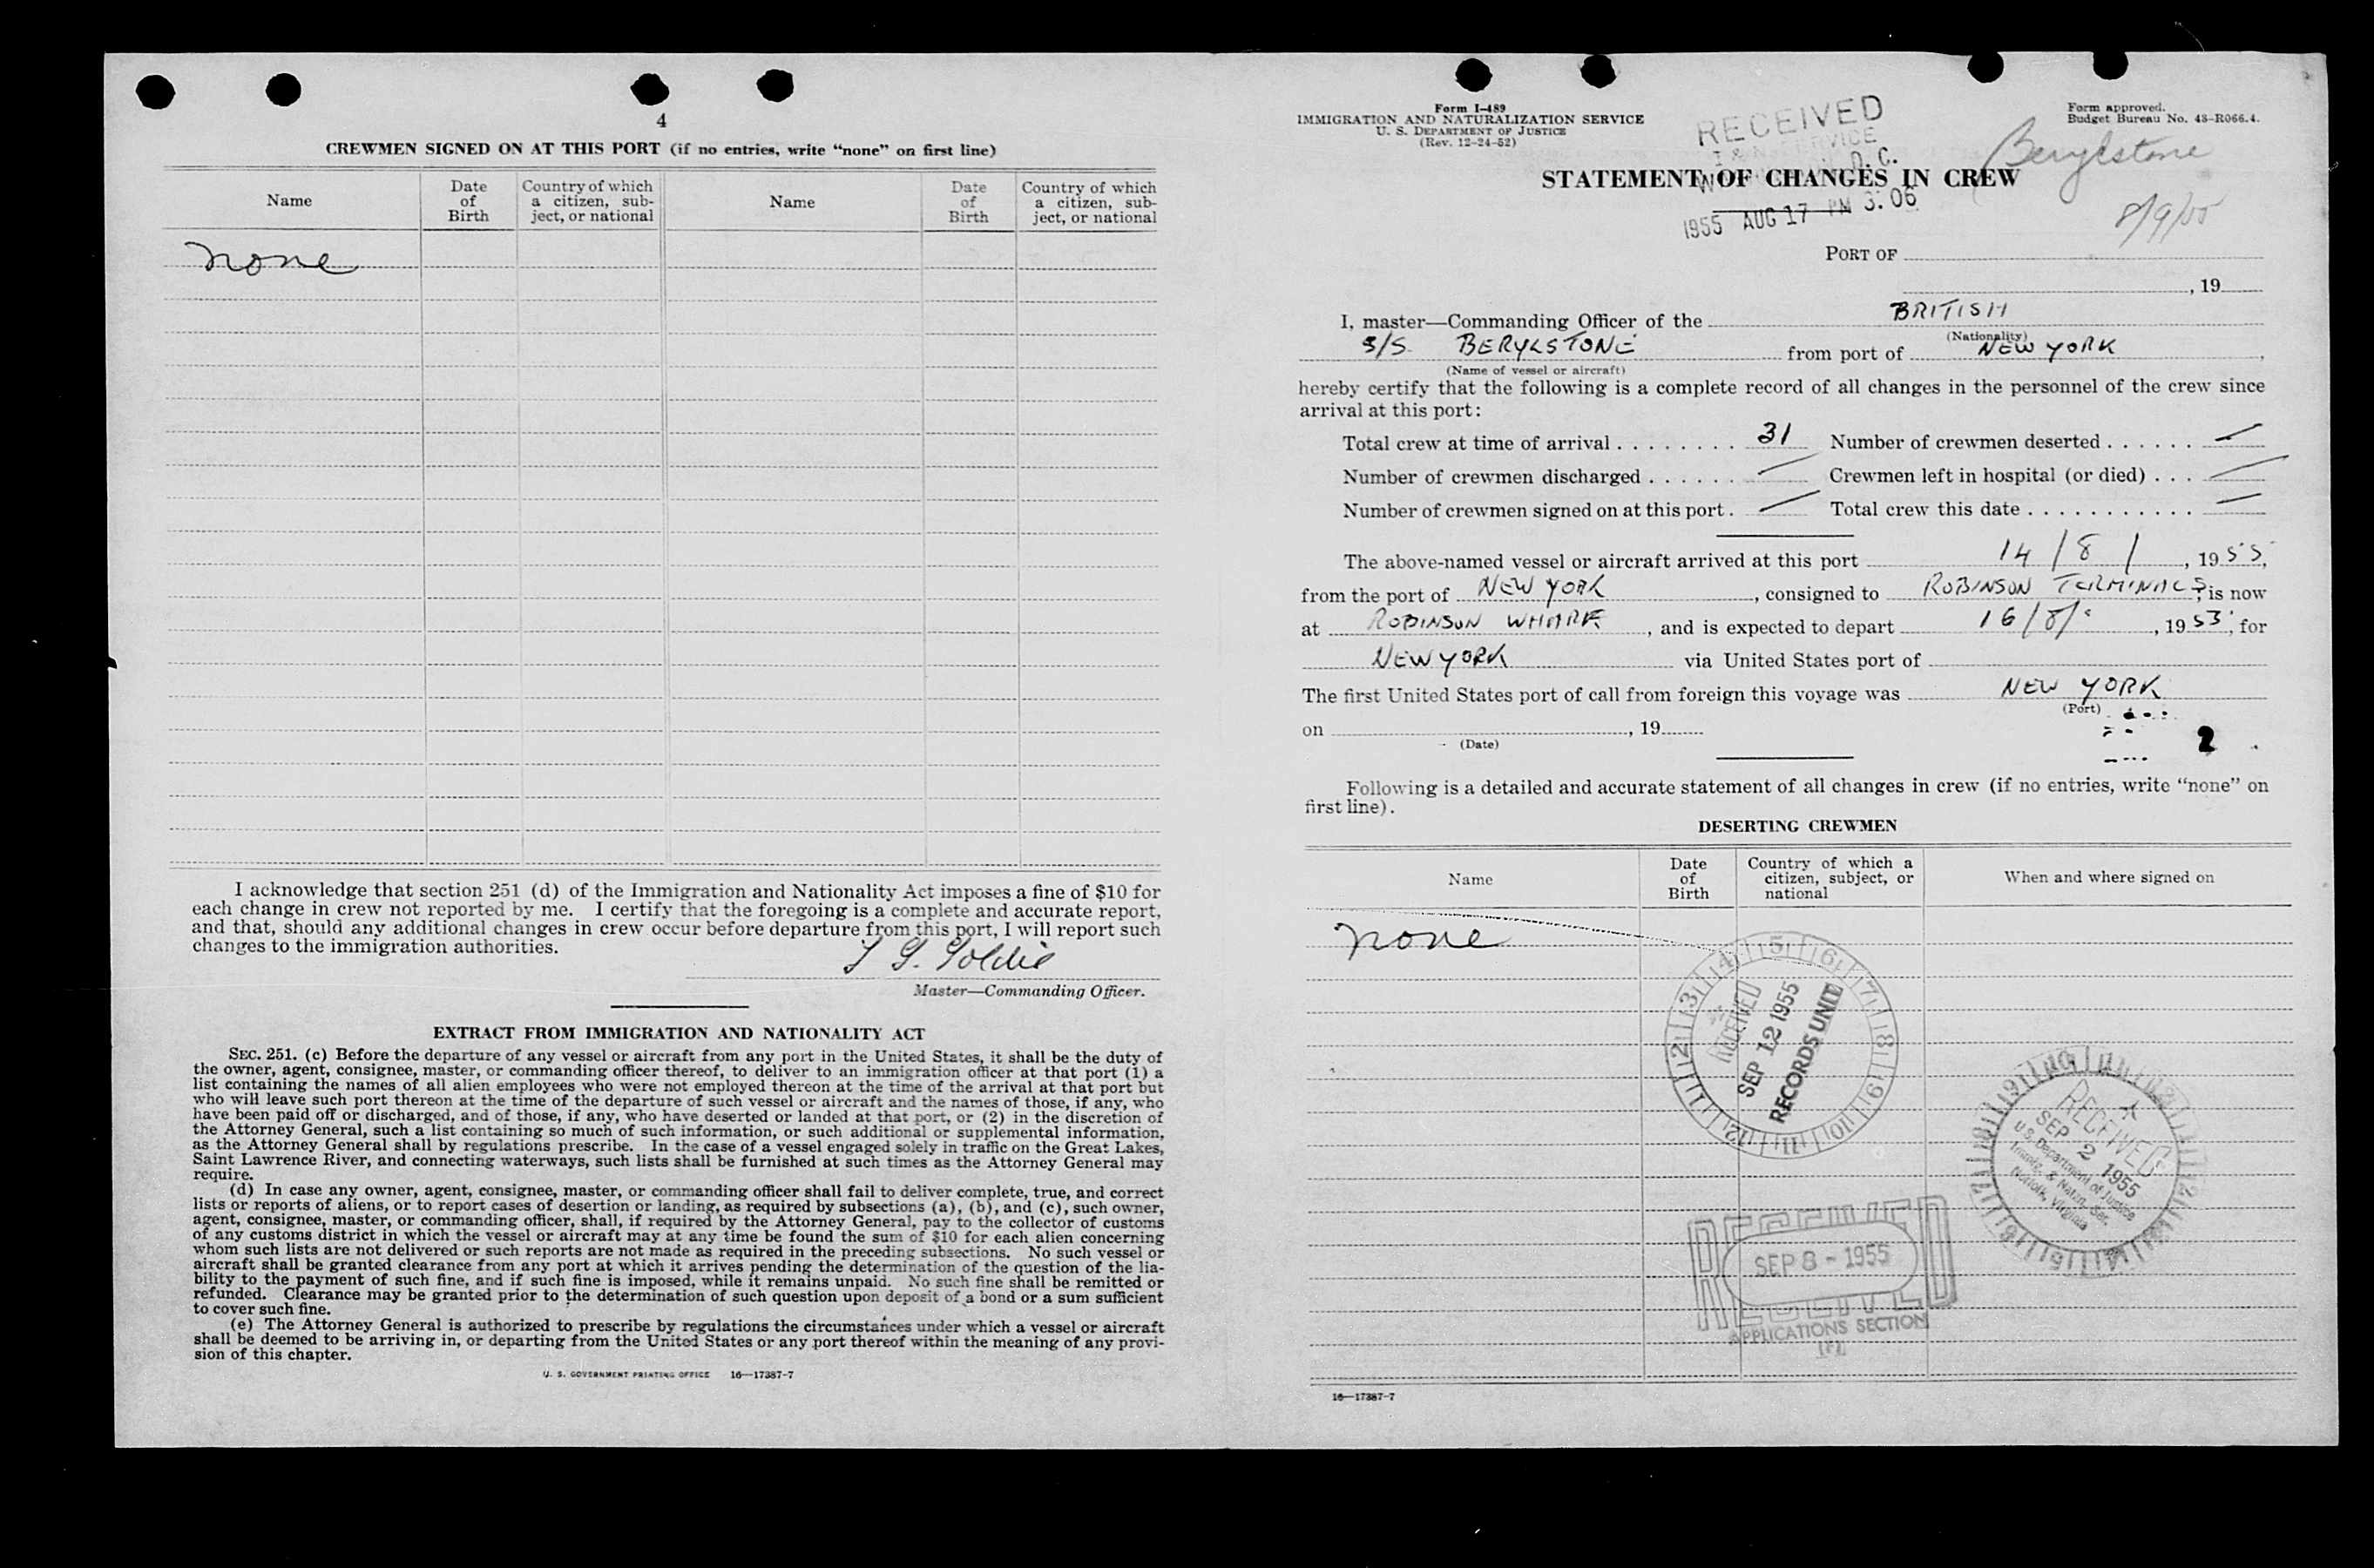 4
CREWMEN SIGNED ON AT THIS PORT (if no entries, write “none” on first line)
Name
Date of Birth
Country of which a citizen, subject, or national
Name
Date of Birth
Country of which a citizen, subject, or national
none
I acknowledge that section 251 (d) of the Immigration and Nationality Act imposes a fine of $10 for
each change in crew not reported by me. I certify that the foregoing is a complete and accurate report,
and that, should any additional changes in crew occur before departure from this port, I will report such
changes to the immigration authorities.
Master—Commanding Officer.
EXTRACT FROM IMMIGRATION AND NATIONALITY ACT
SEC. 251. (c) Before the departure of any vessel or aircraft from any port in the United States, it shall be the duty of
the owner, agent, consignee, master, or commanding officer thereof, to deliver to an immigration officer at that port (1) a
list containing the names of all alien employees who were not employed thereon at the time of the arrival at that port but
who will leave such port thereon at the time of the departure of such vessel or aircraft and the names of those, if any, who
have been paid off or discharged, and of those, if any, who have deserted or landed at that port, or (2) in the discretion of
the Attorney General, such a list containing so much of such information, or such additional or supplemental information,
as the Attorney General shall by regulations prescribe. In the case of a vessel engaged solely in traffic on the Great Lakes,
Saint Lawrence River, and connecting waterways, such lists shall be furnished at such times as the Attorney General may
require.
(d) In case any owner, agent, consignee, master, or commanding officer shall fail to deliver complete, true, and correct
lists or reports of aliens, or to report cases of desertion or landing, as required by subsections (a), (b), and (c), such owner,
agent, consignee, master, or commanding officer, shall, if required by the Attorney General, pay to the collector of customs
of any customs district in which the vessel or aircraft may at any time be found the sum of $10 for each alien concerning
whom such lists are not delivered or such reports are not made as required in the preceding subsections. No such vessel or
aircraft shall be granted clearance from any port at which it arrives pending the determination of the question of the lia-
bility to the payment of such fine, and if such fine is imposed, while it remains unpaid. No such fine shall be remitted or
refunded. Clearance may be granted prior to the determination of such question upon deposit of a bond or a sum sufficient
to cover such fine.
(e) The Attorney General is authorized to prescribe by regulations the circumstances under which a vessel or aircraft
shall be deemed to be arriving in, or departing from the United States or any port thereof within the meaning of any provi-
sion of this chapter.
U. S. GOVERNMENT PRINTING OFFICE 16—17387-7
Form I-489
IMMIGRATION AND NATURALIZATION SERVICE
U. S. DEPARTMENT OF JUSTICE
(Rev. 12-24-52)
Form approved.
Budget Bureau No. 43-R066.4.
RECEIVED
I & N SERVICE
D. C.
1955 AUG 17 PM 3:06
Berylstone
8/9/55
STATEMENT OF CHANGES IN CREW
PORT OF
, 19
I, master—Commanding Officer of the BRITISH
(Nationality)
S/S BERYLSTONE from port of NEW YORK,
(Name of vessel or aircraft)
hereby certify that the following is a complete record of all changes in the personnel of the crew since
arrival at this port:
Total crew at time of arrival 31 Number of crewmen deserted —
Number of crewmen discharged — Crewmen left in hospital (or died) —
Number of crewmen signed on at this port — Total crew this date —
The above-named vessel or aircraft arrived at this port 14/8/, 1955,
from the port of NEW YORK, consigned to ROBINSON TERMINALS, is now
at ROBINSON WHARF, and is expected to depart 16/8/, 1953, for
NEW YORK via United States port of
The first United States port of call from foreign this voyage was NEW YORK
(Port)
on , 19
(Date)
2
Following is a detailed and accurate statement of all changes in crew (if no entries, write “none” on
first line).
DESERTING CREWMEN
Name
Date of Birth
Country of which a citizen, subject, or national
When and where signed on
none
RECEIVED
SEP 12 1955
RECORDS UNIT
RECEIVED
SEP 2 1955
U. S. Department of Justice
Immig. & Natzn. Ser.
Norfolk, Virginia
RECEIVED
SEP 8 - 1955
APPLICATIONS SECTION
16—17387-7